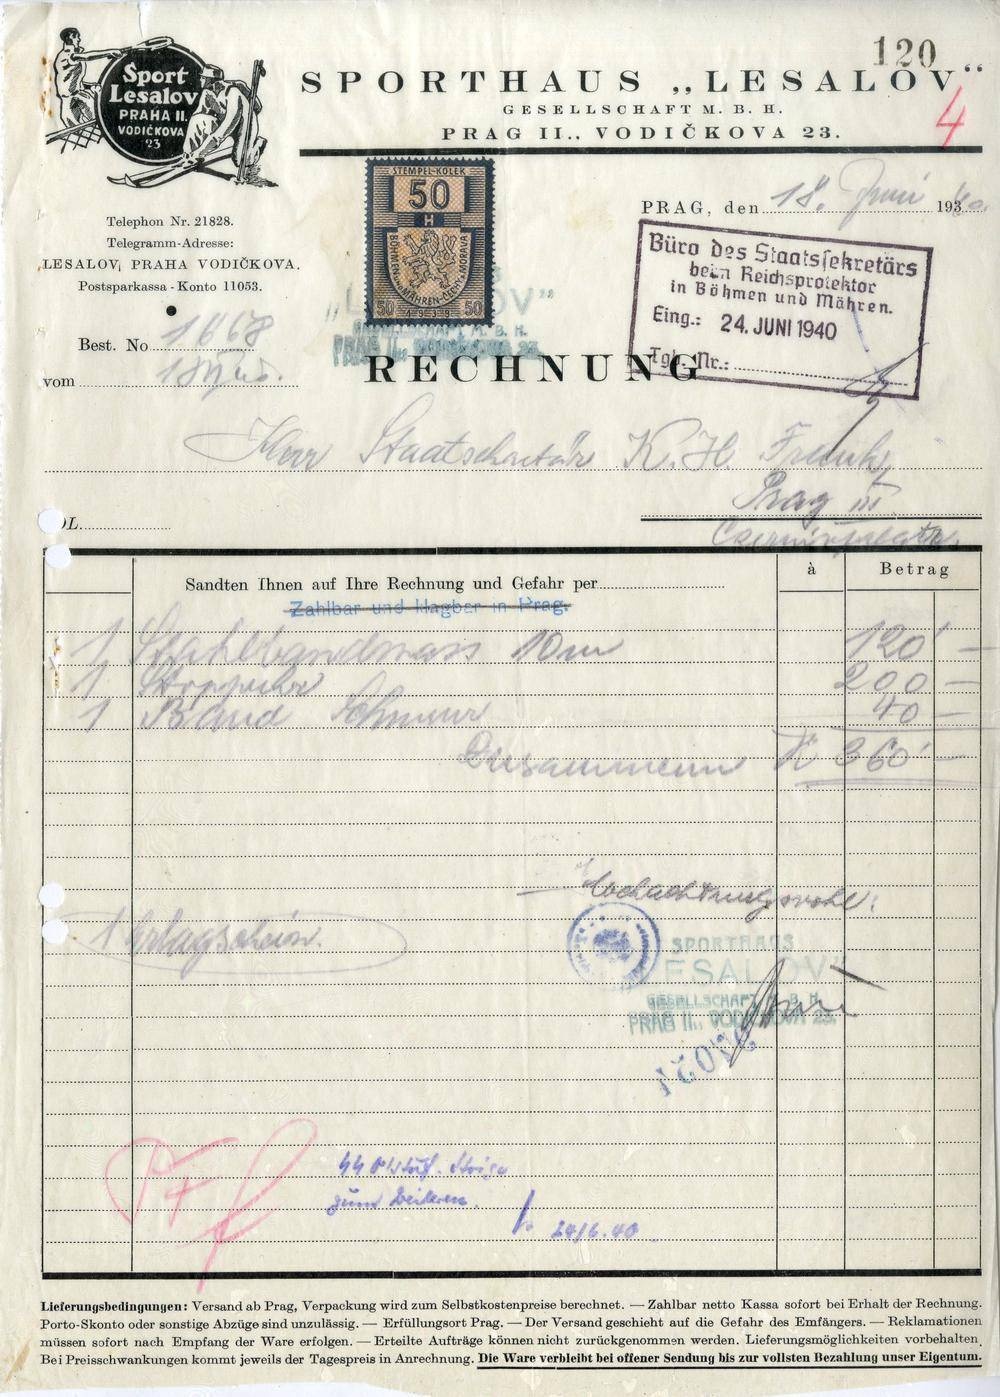 120
Sport
Lesalov
PRAHA II.
VODIČKOVA
23
SPORTHAUS „LESALOV“
GESELLSCHAFT M. B. H.
PRAG II., VODIČKOVA 23.
4
STEMPEL-KOLEK
50
H
BÖHMEN UND MÄHREN-ČECHY A MORAVA
50 1939 50
Telephon Nr. 21828.
Telegramm-Adresse:
LESALOV, PRAHA VODIČKOVA.
Postsparkassa - Konto 11053.
PRAG, den 18. Juni 1940
Büro des Staatssekretärs
beim Reichsprotektor
in Böhmen und Mähren.
Eing.: 24. JUNI 1940
Tgb. Nr.:
Best. No 11668
vom
RECHNUNG
Herr Staatssekretär K. H. Frank
Prag III
Czerninpalais
à
Betrag
Sandten Ihnen auf Ihre Rechnung und Gefahr per
Zahlbar und klagbar in Prag.
1 Stahlbandmass 10m 120 —
1 Stoppuhr 200 —
1 Band Schnur 40 —
Zusammen K 360 —
Hochachtungsvoll:
1 Erlagschein.
SPORTHAUS
„LESALOV“
GESELLSCHAFT M. B. H.
PRAG II., VODIČKOVA 23.
15075
zum Weiteren.
24/6.40
Lieferungsbedingungen: Versand ab Prag, Verpackung wird zum Selbstkostenpreise berechnet. — Zahlbar netto Kassa sofort bei Erhalt der Rechnung.
Porto-Skonto oder sonstige Abzüge sind unzulässig. — Erfüllungsort Prag. — Der Versand geschieht auf die Gefahr des Emfängers. — Reklamationen
müssen sofort nach Empfang der Ware erfolgen. — Erteilte Aufträge können nicht zurückgenommen werden. Lieferungsmöglichkeiten vorbehalten.
Bei Preisschwankungen kommt jeweils der Tagespreis in Anrechnung. Die Ware verbleibt bei offener Sendung bis zur vollsten Bezahlung unser Eigentum.